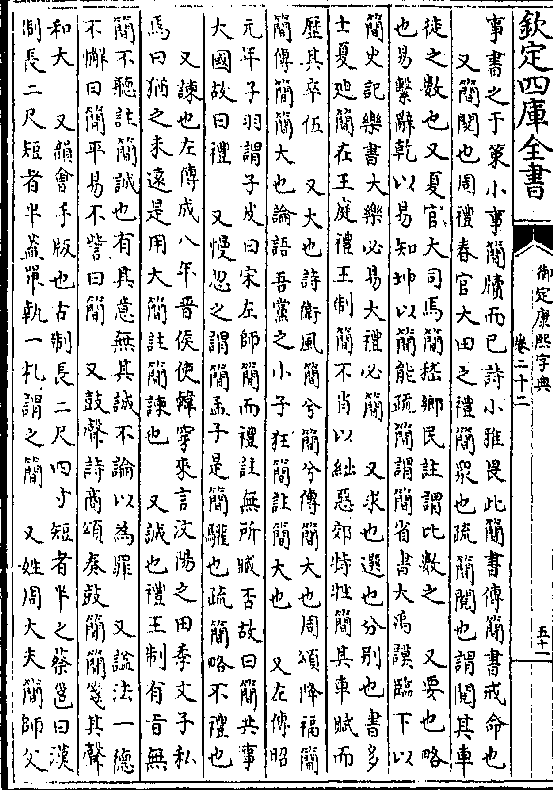 欽定四庫全書
御定康熙字典
卷二十二
五十一
事書之于策小事簡牘而已詩小雅畏此簡書傳簡書戒命也
又簡閱也周禮春官大田之禮簡眾也疏簡閱也謂閱其車
徒之數也又夏官大司馬簡稽鄉民註謂比數之　又要也略
也易繫辭乾以易知坤以簡能疏簡謂簡省書大禹謨臨下以
簡史記樂書大樂必易大禮必簡　又求也選也分別也書多
士夏迪簡在王庭禮王制簡不肖以絀惡郊特牲簡其車賦而
歷其卒伍　又大也詩衛風簡兮簡兮傳簡大也周頌降福簡
簡傳簡簡大也論語吾黨之小子狂簡註簡大也　又左傳昭
元年子羽謂子皮曰宋左師簡而禮註無所臧否故曰簡共事
大國故曰禮　又慢忽之謂簡孟子是簡驩也疏簡略不禮也
又諫也左傳成八年晉侯使韓穿來言汶陽之田季文子私
焉曰猶之未遠是用大簡註簡諫也　又誠也禮王制有旨無
簡不聽註簡誠也有其意無其誠不論以為罪　又諡法一德
不懈曰簡平易不訾曰簡　又鼓聲詩商頌奏鼓簡簡箋其聲
和大　又韻會手版也古制長二尺四寸短者半之蔡邕曰漢
制長二尺短者半蓋單執一札謂之簡　又姓周大夫簡師父